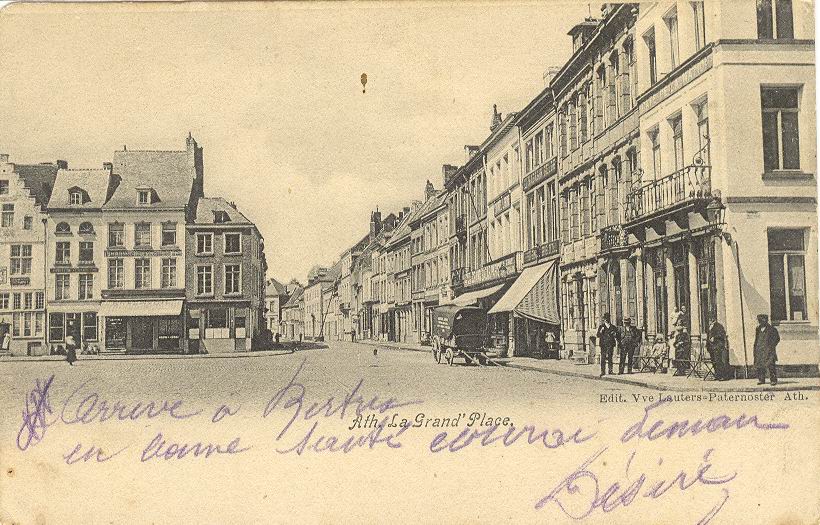 Edit. Vve Lauters-Paternoster Ath.
Ath. La Grand' Place.
Arrive à Bertrix
en bonne santé courai demain
Désiré